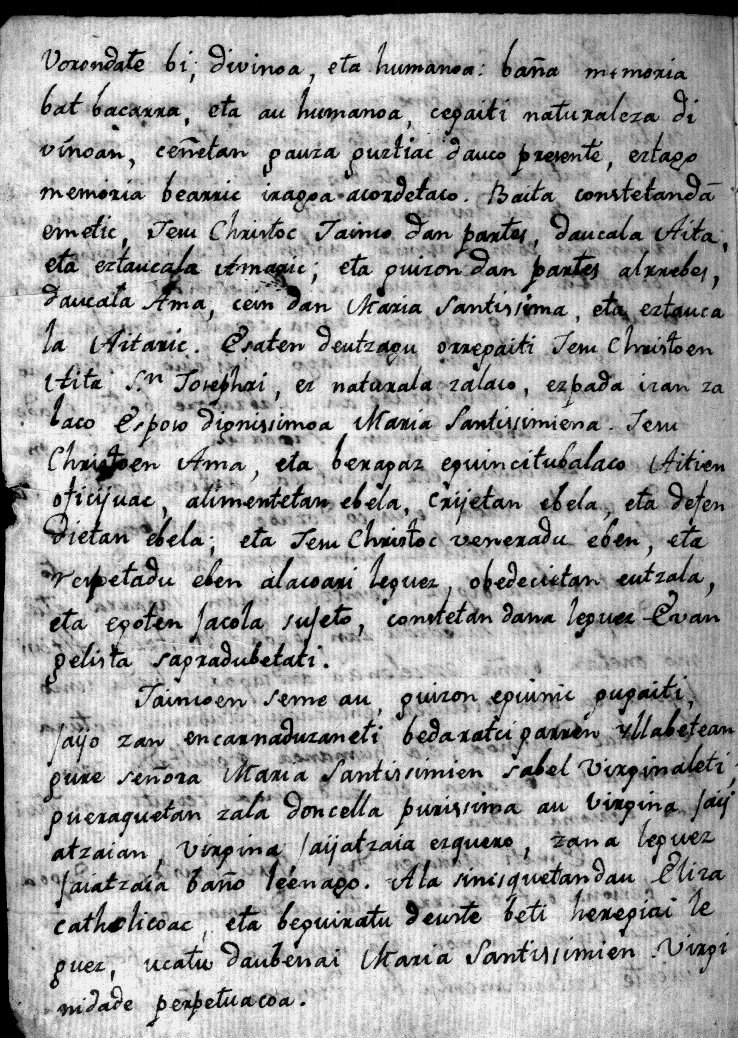 Vorondate bi; divinoa, eta humanoa: baña memoria
bat bacarra, eta au humanoa, cegaiti naturaleza di
vinoan, ceñetan gauza guztiac dauco presente, eztago
memoria bearric iragoa acordetaco. Baita constetandā
emetic, Jesu Christoc Jainco dan partes, daucala Aita,
eta eztaucala Amaric; eta guizon dan partes alrrebes,
daucala Ama, cein dan Maria Santissima, eta eztauca
la Aitaric. Esaten deutzagu orregaiti Jesu Christoen
Aita Sn Josephri, ez naturala zalaco, ezpada izan za
laco Esposo dignissimoa Maria Santissimiena. Jesu
Christoen Ama, eta beragaz eguincitubalaco Aitien
oficijuac, alimentetan ebela, crijetan ebela, eta defen
dietan ebela; eta Jesu Christoc veneradu eben, eta
respetadu eben alacoari leguez, obedecietan eutzala,
eta egoten jacola sujeto, constetan dana leguez Evan
gelista sagradubetati.
Jaincoen seme au, guizon eguinic gugaiti,
jayo zan encarnaduzaneti bedaratcigarren yllabetean
gure señora Maria Santissimien sabel Virginaleti;
gueraquetan zala doncella purissima au virgina jaij
atzaian, virgina jaijatzaia ezquero, zana leguez
jaiatzaia baño leenago. Ala sinisquetandau Eliza
catholicoac, eta beguiratu deuste beti heregiai le
guez, ucatu daubenai Maria Santissimien Virgi
nidade perpetuacoa.